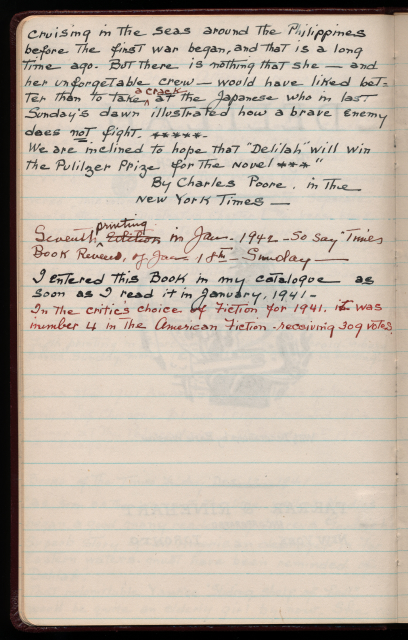 cruising in the seas around the Philippines
before the first war began, and that is a long
time ago. But there is nothing that she — and
her unforgetable crew — would have liked bet=
ter than to take a crack at the Japanese who in last
Sunday's dawn illustrated how a brave enemy
does not fight *****-
We are inclined to hope that "Delilah" will win
the Pulilzer Prize for the novel ***"
By Charles Poore. in the
New York Times —
Seventh printing in Jan- 1942 - So say "Times
Book Review, of Jan 18th - Sunday —
I entered this Book in my catalogue as
soon as I read it in January, 1941 -
In the critics choice of Fiction for 1941. it was
number 4 in the American Fiction - receiving 309 votes.